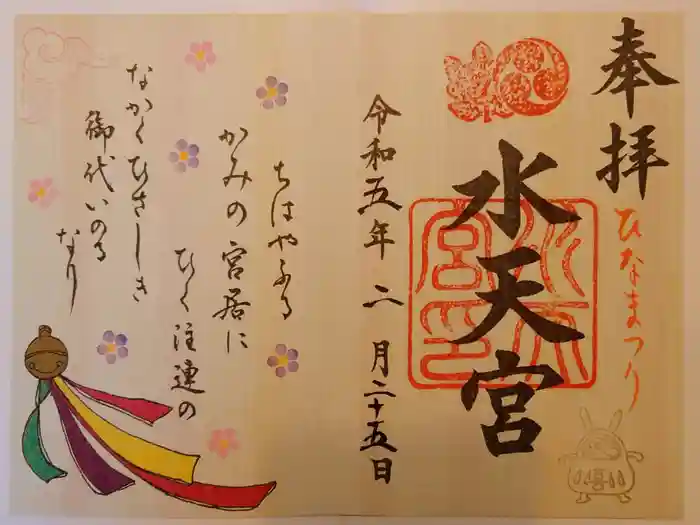 奉拝
ひなまつり
水天宮
水天宮印
令和五年二月二十五日
ちはやふる
かみの宮居に
ひく注連の
なかくひさしき
御代いのる
なり